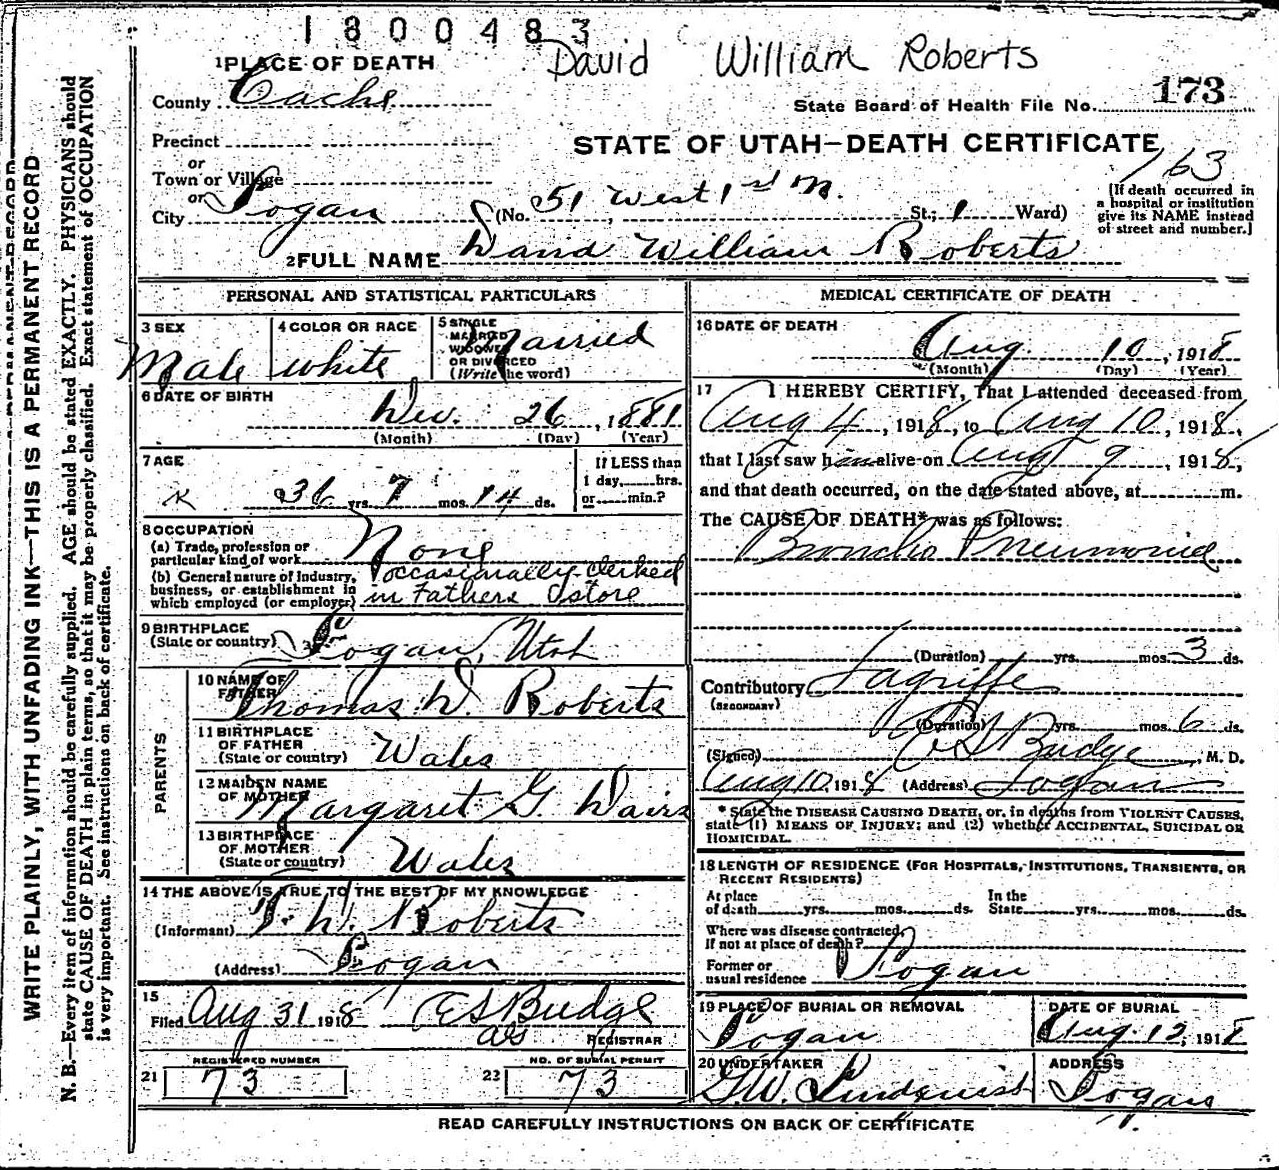 1800483
David William Roberts
1 PLACE OF DEATH
County Cache
State Board of Health File No. 173
Precinct
or
STATE OF UTAH—DEATH CERTIFICATE
163
Town or Village
or
City Logan (No. 51 West 1st N. St.; 1 Ward)
(If death occurred in
a hospital or institution
give its NAME instead
of street and number.]
2 FULL NAME David William Roberts
WRITE PLAINLY, WITH UNFADING INK—THIS IS A PERMANENT RECORD
N. B.—Every item of information should be carefully supplied. AGE should be stated EXACTLY. PHYSICIANS should
state CAUSE OF DEATH in plain terms, so that it may be properly classified. Exact statement of OCCUPATION
is very important. See instructions on back of certificate.
PERSONAL AND STATISTICAL PARTICULARS
3 SEX
Male
4 COLOR OR RACE
white
5 SINGLE
MARRIED
WIDOWED
OR DIVORCED
(Write the word)
Married
6 DATE OF BIRTH
Dec. 26, 1881
(Month) (Day) (Year)
7 AGE
36 yrs. 7 mos. 14 ds.
If LESS than
1 day, hrs.
or min.?
8 OCCUPATION
(a) Trade, profession or
particular kind of work
None
(b) General nature of Industry,
business, or establishment in
which employed (or employer)
occasionally clerked
in Fathers Store
9 BIRTHPLACE
(State or country)
Logan, Utah
PARENTS
10 NAME OF
FATHER
Thomas W. Roberts
11 BIRTHPLACE
OF FATHER
(State or country)
Wales
12 MAIDEN NAME
OF MOTHER
Margaret G. Davis
13 BIRTHPLACE
OF MOTHER
(State or country)
Wales
14 THE ABOVE IS TRUE TO THE BEST OF MY KNOWLEDGE
(Informant) T. W. Roberts
(Address) Logan
15
Filed Aug 31 1918 ES Budge
REGISTRAR
REGISTERED NUMBER
21 73
NO. OF BURIAL PERMIT
22 73
MEDICAL CERTIFICATE OF DEATH
16 DATE OF DEATH
Aug. 10, 1918
(Month) (Day) (Year)
17 I HEREBY CERTIFY, That I attended deceased from
Aug 4, 1918, to Aug 10, 1918,
that I last saw him alive on Aug 9, 1918,
and that death occurred, on the date stated above, at m.
The CAUSE OF DEATH* was as follows:
Broncho Pneumonia
(Duration) yrs. mos. 3 ds.
Contributory Lagrippe
(SECONDARY)
(Duration) yrs. mos. 6 ds.
(Signed) Budge, M. D.
Aug 10, 1918 (Address) Logan
* State the DISEASE CAUSING DEATH, or, in deaths from VIOLENT CAUSES,
state (1) MEANS OF INJURY; and (2) whether ACCIDENTAL, SUICIDAL OR
HOMICIDAL.
18 LENGTH OF RESIDENCE (FOR HOSPITALS, INSTITUTIONS, TRANSIENTS, OR
RECENT RESIDENTS)
At place
of death yrs. mos. ds.
In the
State yrs. mos. ds.
Where was disease contracted,
if not at place of death?
Former or
usual residence Logan
19 PLACE OF BURIAL OR REMOVAL
Logan
DATE OF BURIAL
Aug. 12, 1918
20 UNDERTAKER
G.W. Lindquist
ADDRESS
Logan
READ CAREFULLY INSTRUCTIONS ON BACK OF CERTIFICATE